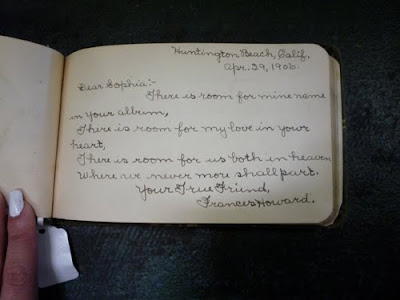 Huntington Beach, Calif.
Apr. 29, 1906.
Dear Sophia:-
There is room for mine name
in your album,
There is room for my love in your
heart,
There is room for us both in heaven
Where we never more shall part.
Your True Friend,
Frances Howard.